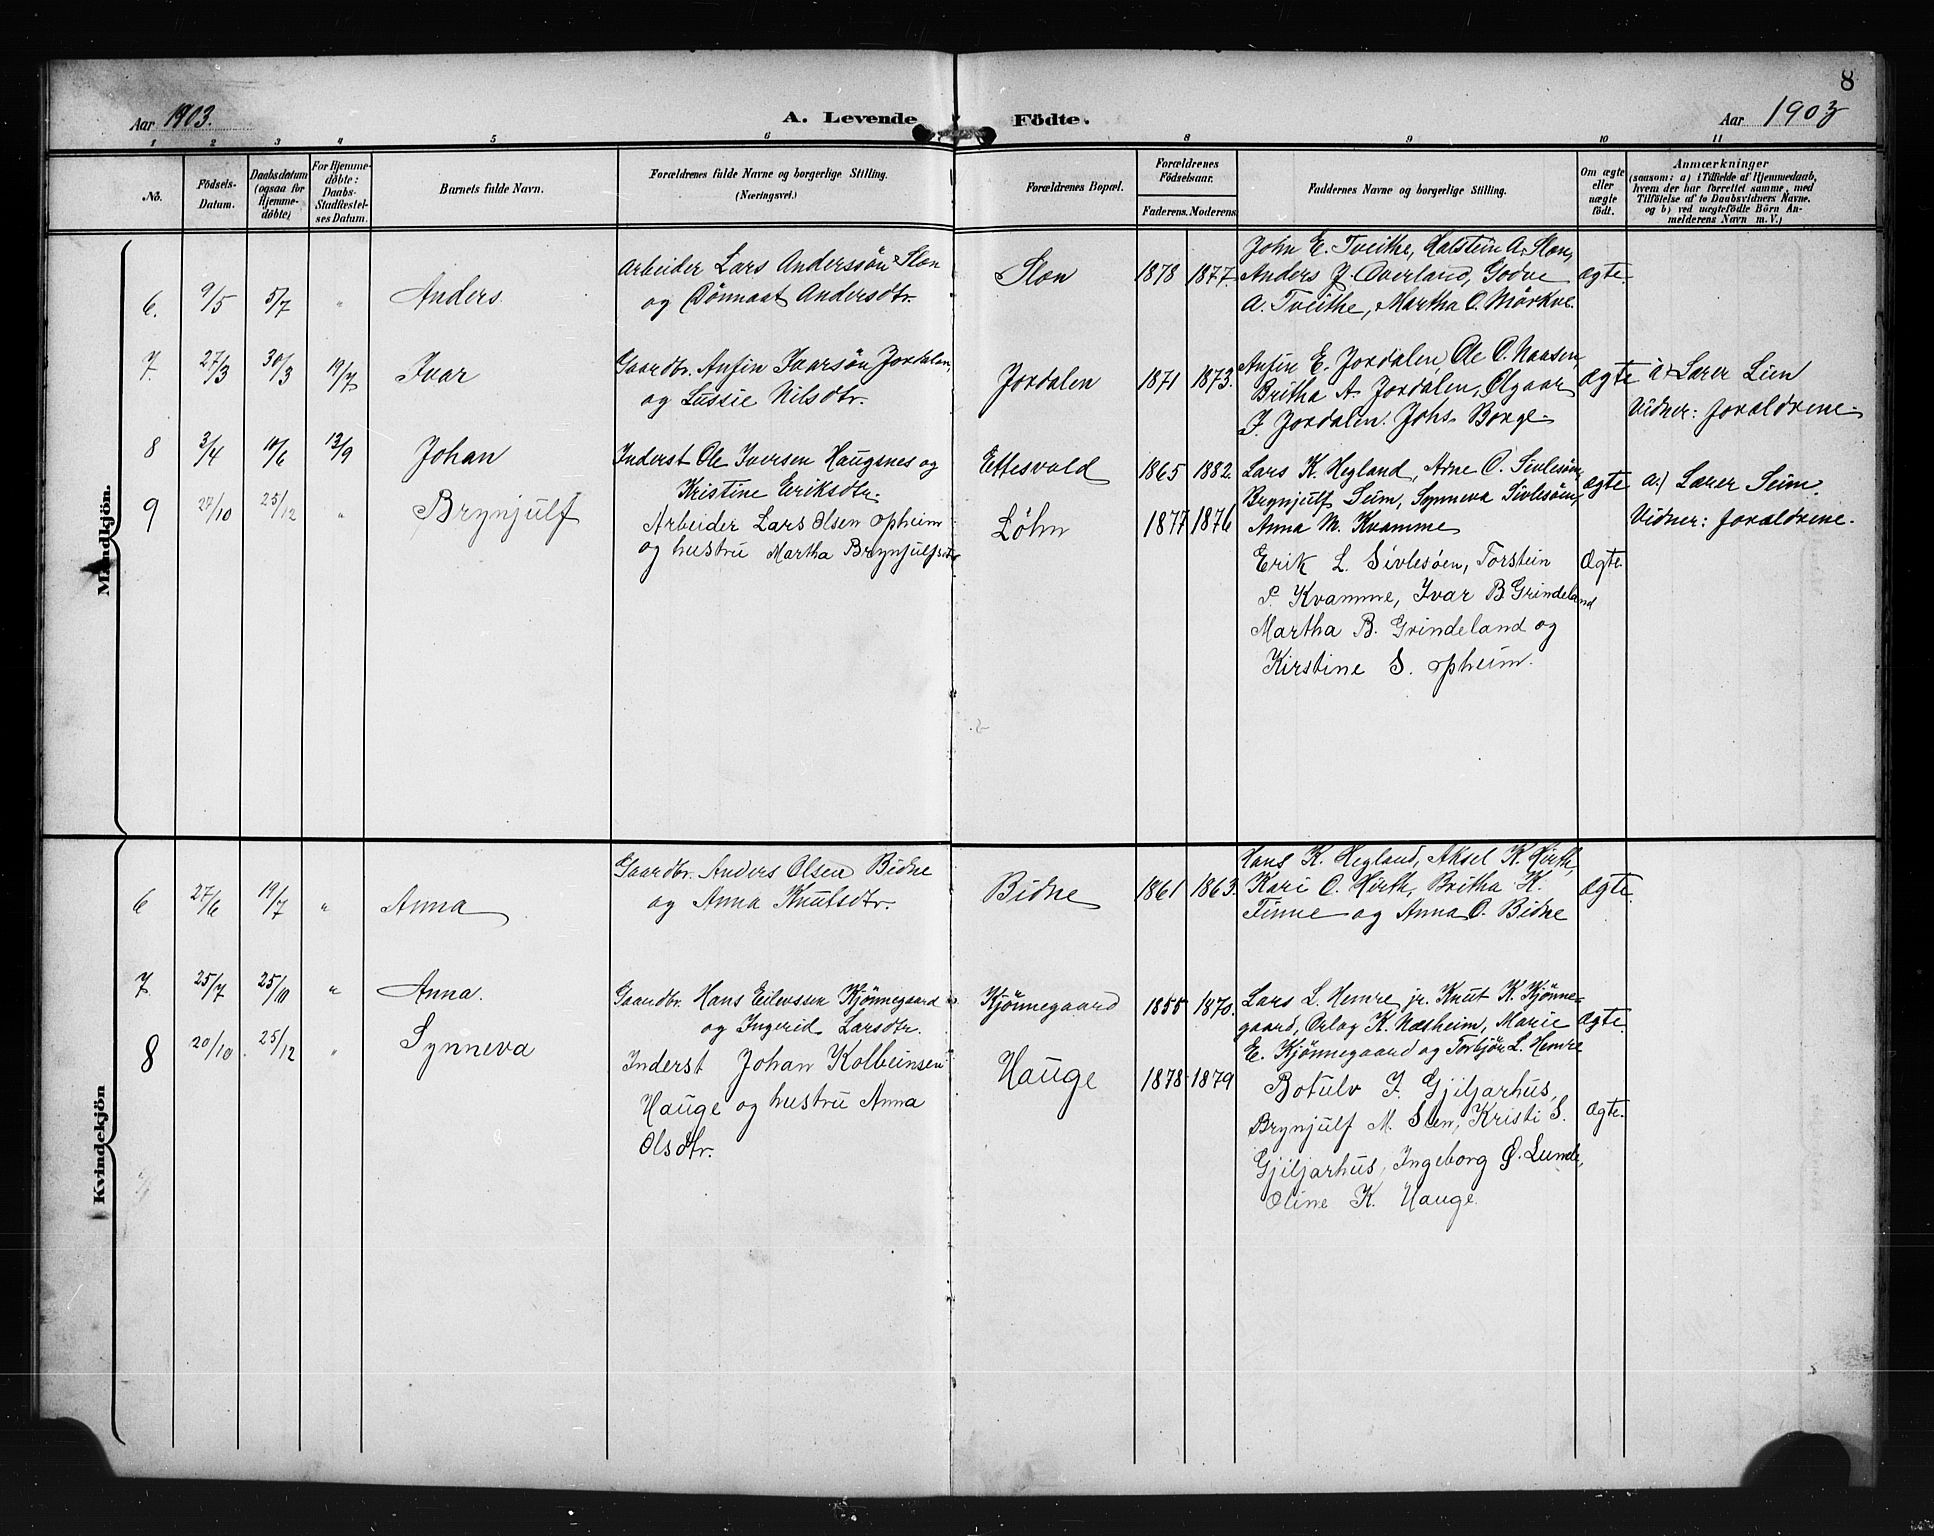 8
Aar 1903.
A. Levende Födte.
Aar 1903
1 2 3 4 5 6 8 9 10 11
No.
Födsels-Datum.
Daabsdatum (ogsaa for Hjemmedøbte)
For Hjemmedöbte: Daabs-Stadfestelses Datum.
Barnets fulde Navn.
Forældrenes fulde Navne og borgerlige Stilling.
(Næringsvei.)
Forældrenes Bopæl.
Forældrenes Födselsaar.
Faderens. Moderens.
Faddernes Navne og borgerlige Stilling.
Om ægte eller uægte födt.
Anmærkninger
(saasom: a) i Tilfælde af Hjemmedaab,
hvem der har forrettet samme, med
Tilföielse af to Daabsvidners Navne.
og b) ved uægtefödte Börn An-
melderens Navn m. V.)
Mandkjön.
6. 9/5 5/7 " Anders
Arbeider Lars Anderssön Sløn
og Dönnaat Andersdtr.
Sløn 1878 1877.
John E. Tveithe, Halstein A. Sløn,
Anders J. Overland, Godve
A. Tveithe, Martha O. Mörkve.
Ægte.
7. 27/3 30/3 19/7 Ivar
Gaardbr. Anfin Ivarsön Jordalen,
og Lussie Nilsdtr.
Jordalen 1871 1873.
Anfin E. Jordalen, Ole O. Naasen,
Britha A. Jordalen, Olgaar
I. Jordalen. Johs. Borge.
Ægte
a) Lærer Lien
Vidner: Forældrene.
8 3/4 10/6 13/9 Johan
Inderst Ole Iversen Haugsnes og
Kristine Eriksdtr.
Ettesvold 1865 1882.
Lars K. Hegland, Arne O. Sivlesöen,
Brynjulf Seim, Synneva Sivlesöen,
Anna M. Kvamme
Ægte
a.) Lærer Seim.
Vidner: Forældrene.
9 27/10 25/12 " Brynjulf
Arbeider Lars Olsen Opheim
og hustru Martha Brynjulfsdtr
Løhn 1877 1876
Erik L. Sivlesöen, Torstein
P. Kvamme, Ivar B Grindeland
Martha B. Grindeland og
Kirstine S. Opheim.
Ægte.
Kvindekjön
6 27/6 19/7 " Anna
Gaardbr. Anders Olsen Bidne
og Anna Knutsdtr.
Bidne 1861 1863.
Hans K. Hegland, Aksel K. Hirth,
Kari O. Hirth, Britha K.
Finne og Anna O. Bidne
Ægte.
7. 25/7 25/10 " Anna.
Gaardbr. Hans Eilevssen Kjönnegaard
og Ingerid Larsdtr.
Kjönnegaard 1855 1870.
Lars L. Hemre jr. Knut K. Kjönne-
gaard, Orlog K. Næsheim, Marie
E. Kjönnegaard og Torbjör L. Hemre
Ægte.
8 20/10 25/12 " Synneva
Inderst Johan Kolbeinsen
Hauge og hustru Anna
Olsdtr.
Hauge 1878 1879
Botulv J. Gjiljarhus,
Brynjulf M. Sten, Kristi S.
Gjiljarhus, Ingeborg O. Lunde,
Oline K. Hauge.
Ægte.